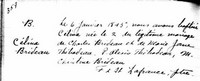 B.
Célina
Brideau
le 4 janvier 1845 nous avons baptisé
Célina née le 2 du légitime mariage
de Charles Brideau et de Marie Jeanne
Thibodeau. P. Thibodeau, M.
Caroline Brideau
Lafrance, ptre